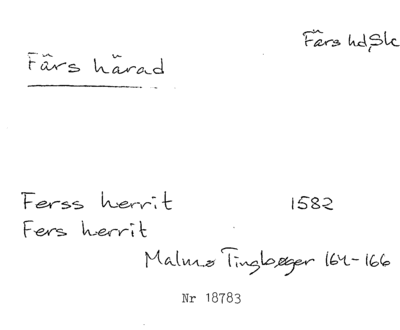 Färs hd, Sk
Färs härad
Ferss herrit 1582
Fers herrit
Malmø Tingbøger 164-166
Nr 18783